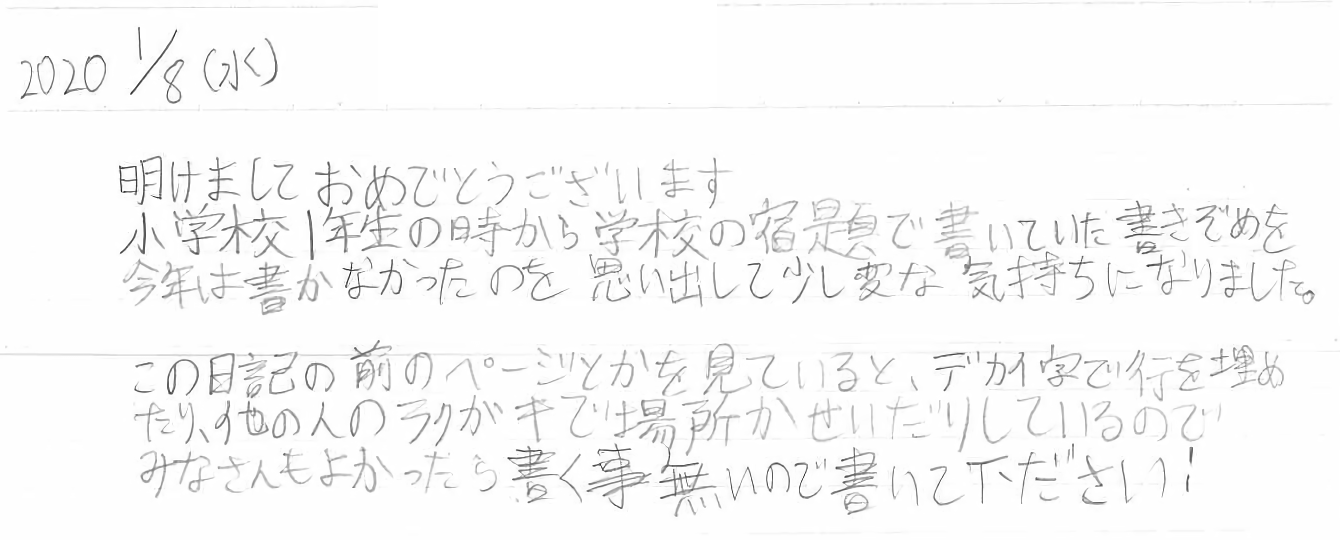 2020 1/8(水)
明けましておめでとうございます
小学校1年生の時から学校の宿題で書いていた書きぞめを
今年は書かなかったのを思い出して少し変な気持ちになりました。
この日記の前のページとかを見ていると、デカイ字で行を埋め
たり、他の人のラクガキで場所かせいだりしているので
みなさんもよかったら書く事無いので書いて下ださい!